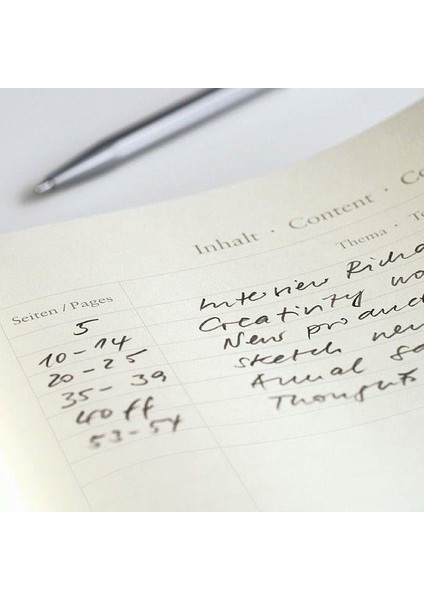 Inhalt · Content · Co
Seiten / Pages Thema · To
5 Interview Richa
10-14 Creativity wo
20-25 New product
35-39 sketch new
40 ff Annual sa
53-54 Thoughts